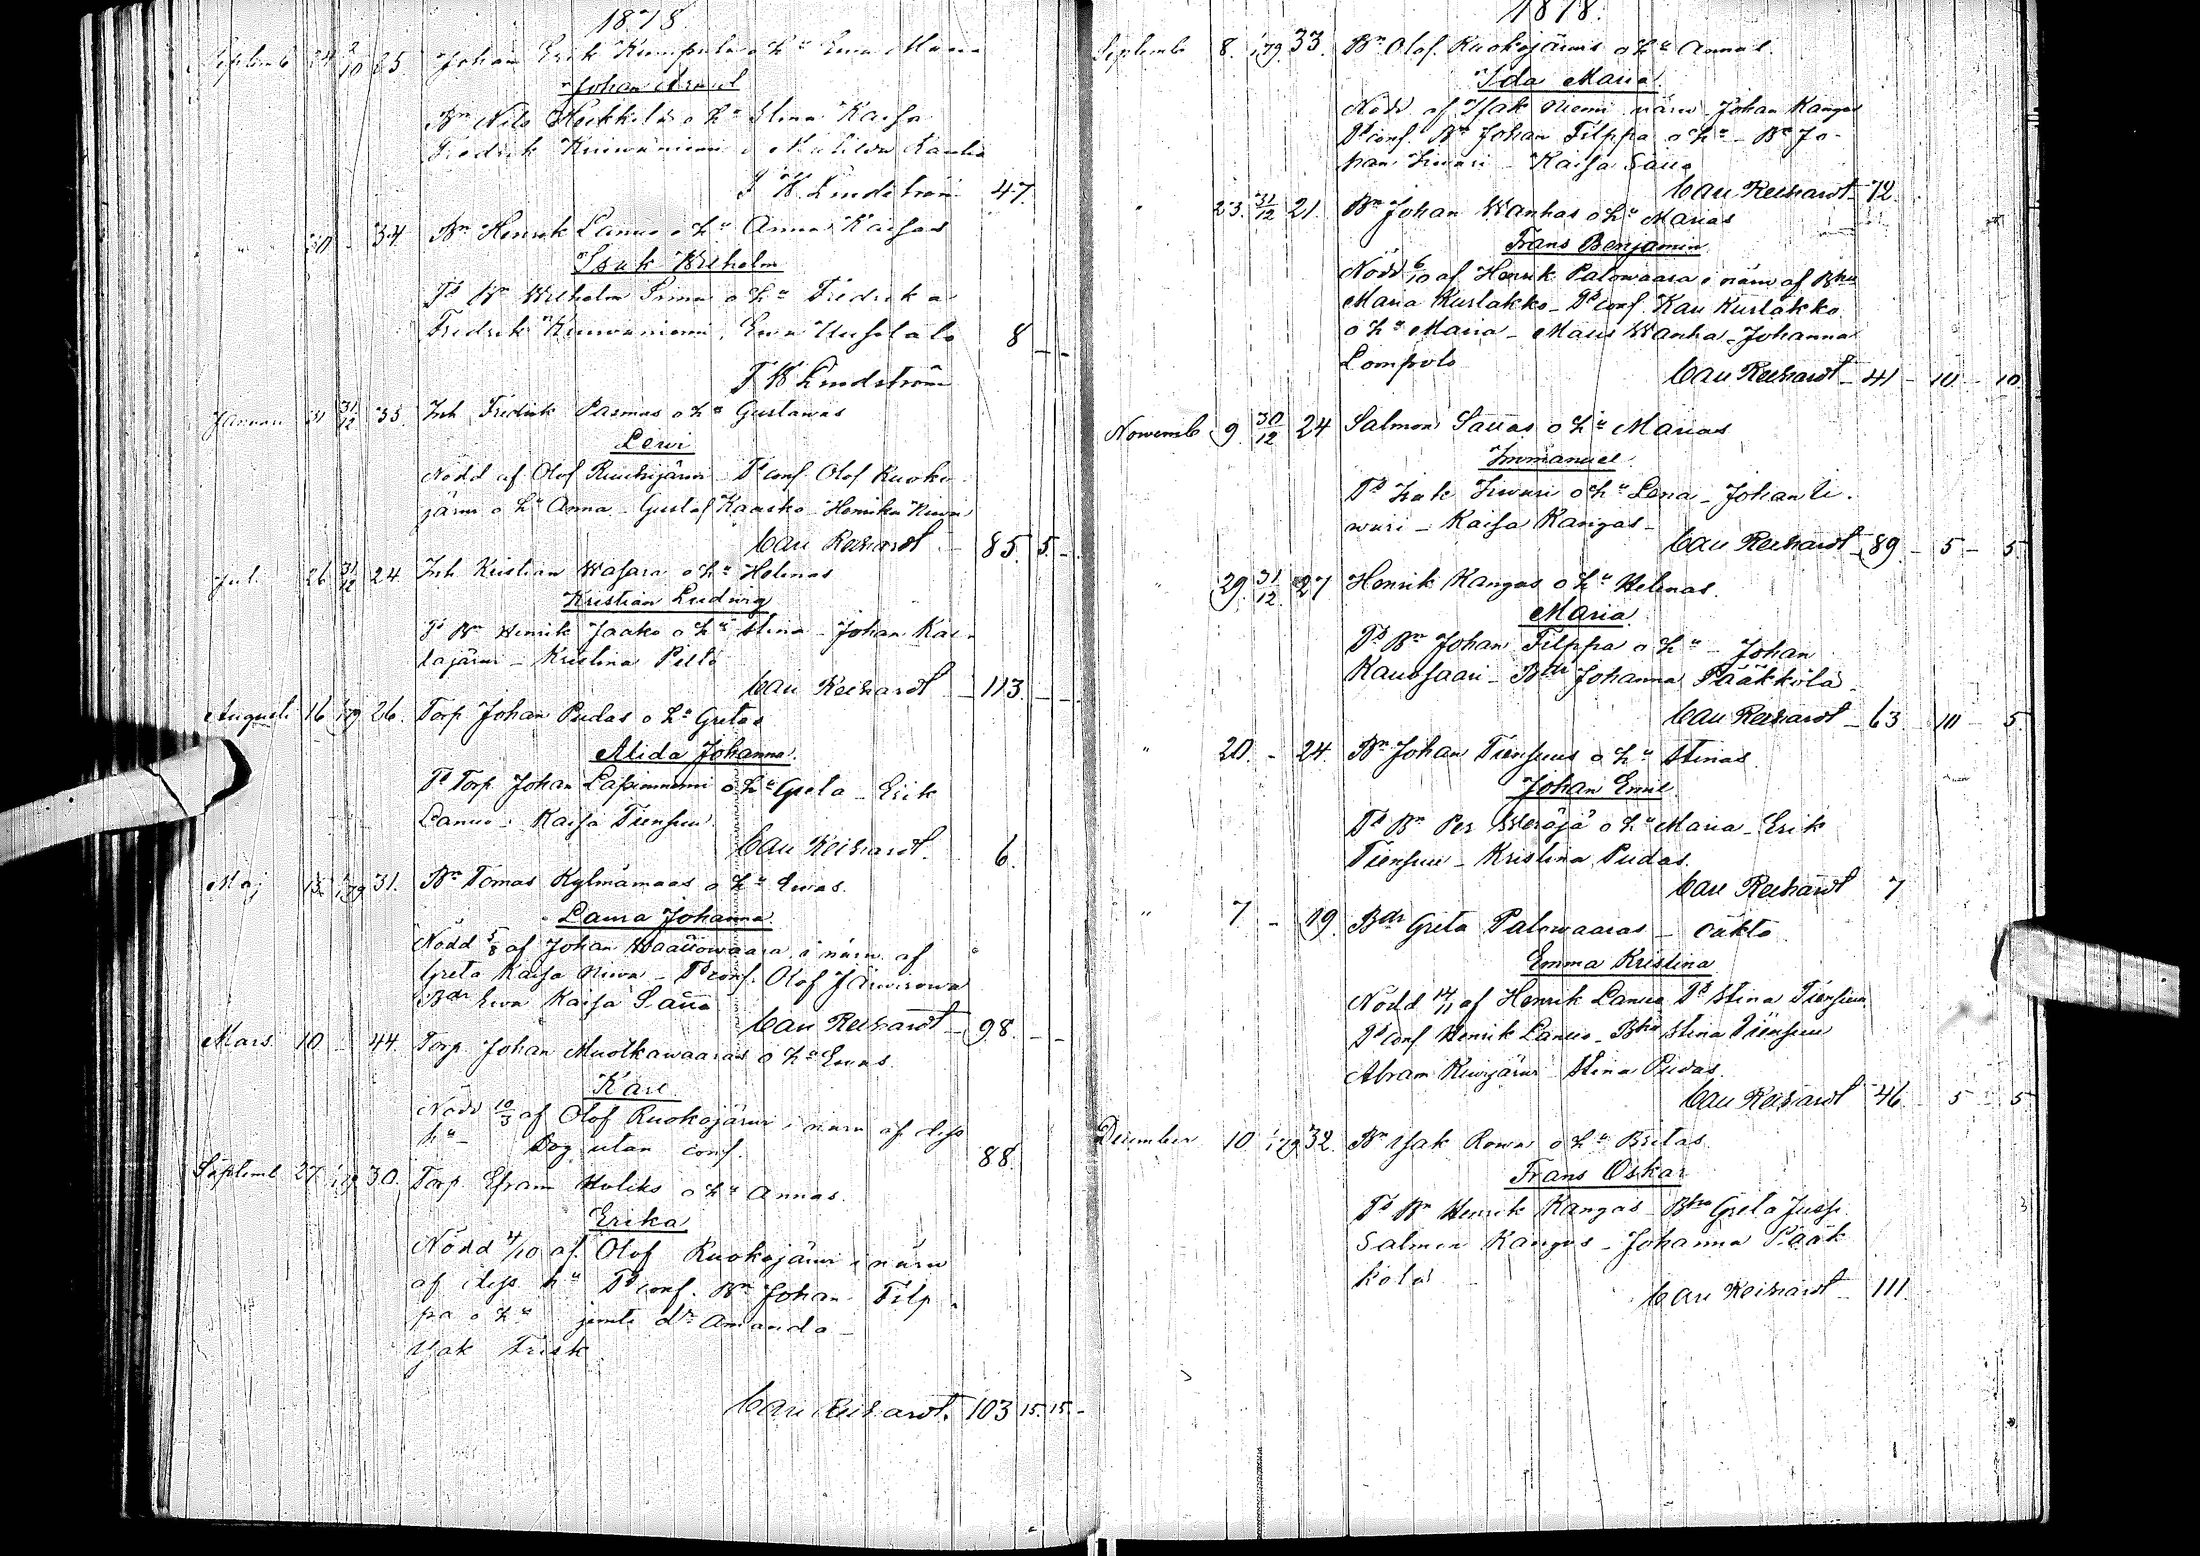 1878.
Septemb 24 2/10 25 Johan Erik Kumpula o hu Ewa Maria
Johan Arvid
Bn Nils Heikkilä o hu Stina Kaisa
Fredrik Kuiwaniemi o Matilda
F W Lindström 47.
" 30 - 34. Bn Henrik Lanus o hu Anna Kaisas
Isak Wilhelm
Td Bn Wilhelm o hu Fredrika
Fredrik Kuiwaniemi, Ewa Uusitalo 8 - -
F W Lindström
Januari 31 31/12 33. Inh Fredrik Rasmus o hu Gustawas
Lewi
Nödd af Olof Ruokojärwi Td conf. Olof Ruoko-
järwi o hu Anna - Gustaf Kaasko - Henrika Niwa
Carl Reihardt - 85. 5. -
Juli 26 31/12 24 Inh Kristian Wasara o hu Helenas
Kristian Ludwig
Td Bn Henrik Jaako o hu Stina - Johan Kal-
lajärwi - Kristina Pello
Carl Reihardt - 113. - -
Augusti 16 1/79 26. Torp Johan Pudas o hu Gretas
Alida Johanna.
Td Torp Johan Lapinniemi o hu Greta - Erik
Lanus - Kaisa Tiensuu.
Carl Reihardt. 6.
Maj 15 1/79 31. Bn Tomas Kylmämaas o hu Ewas.
Laura Johanna.
Nödd 5/8 af Johan i närw. af
Greta Kaisa Niwa - Td conf. Olof Järwirowa
Bdr Ewa Kaisa Saua
Carl Reihardt - 98. - -
Mars 10 - 44. Torp. Johan Muotkawaaras o hu Ewas.
Karl.
Nödd 10/3 af Olof Ruokojärwi i närw af dess
hu - Dog utan conf. 88.
Septemb 27 1/79 30. Torp. Efram Huliks o hu Annas.
Erika
Nödd 4/10 af Olof Ruokojärwi i närw
af dess hu Td conf. Bn Johan Filp-
pa o hu jemte dr Amanda -
Isak Frisk
Carl Reihardt. 103 15. 15. -
1878.
Septemb 8. 1/79. 33. Bn Olof Ruokojärwis o hu Annas.
Ida Maria.
Nödd af Isak Niemi närw Johan Kangas
Td conf. Bn Johan Filppa o hu - Bn Jo-
han Liwari - Kaisa Saua
Carl Reihardt - 72.
" 23. 31/12 21. Bn Johan Wanhas o hu Marias
Frans Benjamin
Nödd 6/10 af Henrik Palowaara i närw af Bhu
Maria Kurtakko - Td conf. Karl Kurtakko
o hu Maria - Maus Wanha - Johanna
Lompolo
Carl Reihardt - 41 - 10 - 10
Nowemb 9. 30/12 24 Salmon Sauas o hu Marias
Immanuel.
Td Isak Liwari o hu Lena - Johan Li-
wari - Kaisa Kangas -
Carl Reihardt - 89 - 5 - 5
" 29. 31/12. 27 Henrik Kangas o hu Helenas.
Maria.
Td Bn Johan Filppa o hu - Johan
Kaussaari - Bdr Johanna Pääkkölä -
Carl Reihardt - 63 - 10 - 5
" 20. - 24. Bn Johan Tiensuus o hu Stinas
Johan Emil
Td Bn Per Weräjä o hu Maria - Erik
Tiensuu - Kristina Pudas.
Carl Reihardt 7
" 7 - 19. Bdr Greta Palowaaras - oäkta
Emma Kristina
Nödd 14/11 af Henrik Lanus Td Stina Tiensuu
Td conf Henrik Lanus - Bhu Stina Tiensuu
Abram Kuijärwi Stina Pudas.
Carl Reihardt 46 - 5 - 5
December 10 1/79 32. Bn Isak Rowa o hu Britas
Frans Oskar
Td Bn Henrik Kangas - Bhu Greta Jussi
Salmon Kangas - Johanna Pääk-
kölä
Carl Reihardt - 111.